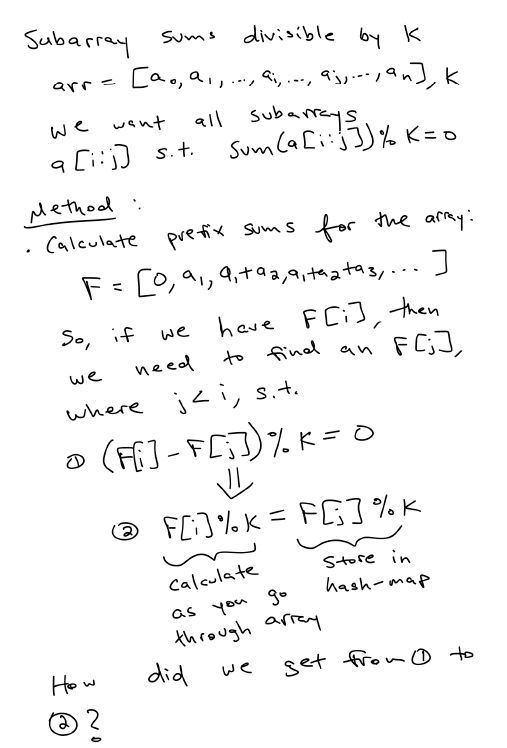 Subarray sums divisible by K
arr = [a0, a1, ..., ai, ..., aj, ..., an], K
we want all subarrays
a[i:j] s.t. Sum(a[i:j])%K=0
Method :
. Calculate prefix sums for the array:
F = [0, a1, a1+a2, a1+a2+a3, ... ]
So, if we have F[i], then
we need to find an F[j],
where j<i, s.t.
① (F[i] - F[j])%K = 0
⇓
② F[i]%K = F[j]%K
calculate
as you go
through array
store in
hash-map
How did we get from ① to
② ?